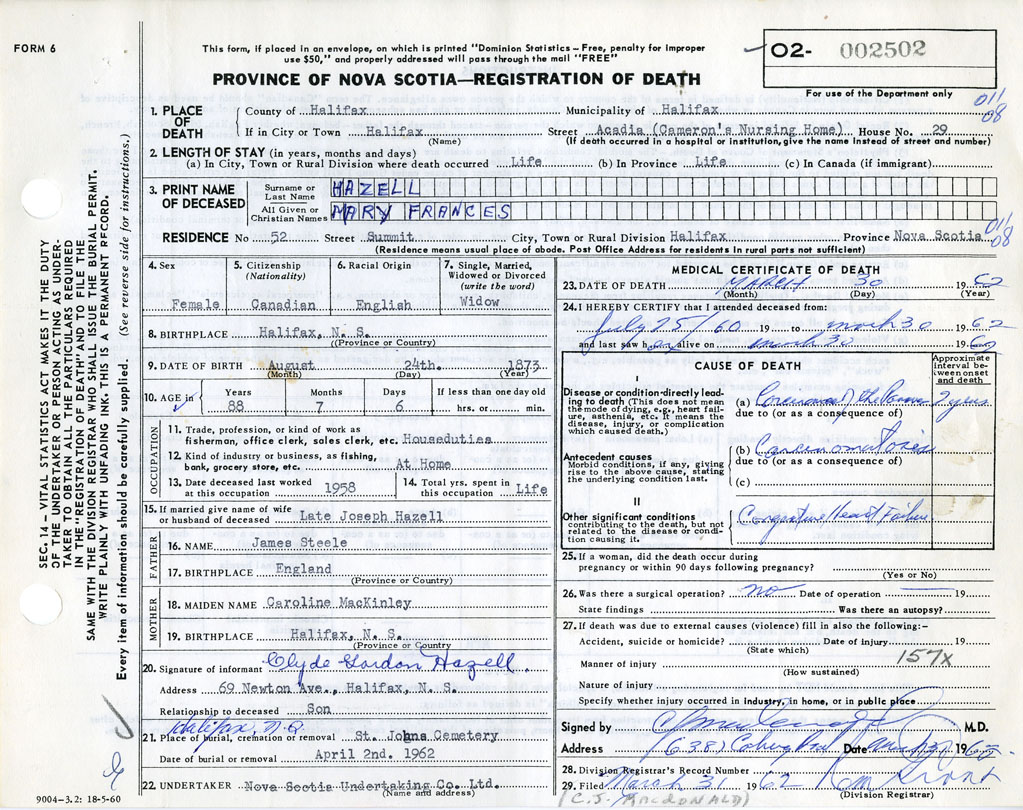 FORM 6
This form, if placed in an envelope, on which is printed "Dominion Statistics – Free, penalty for improper
use $50," and properly addressed will pass through the mail "FREE"
PROVINCE OF NOVA SCOTIA—REGISTRATION OF DEATH
02- 002502
For use of the Department only
011/08
1. PLACE OF DEATH
County of Halifax Municipality of Halifax
If in City or Town Halifax Street Acadia (Cameron's Nursing Home) House No. 29
(Name) (If death occurred in a hospital or institution, give the name instead of street and number)
2. LENGTH OF STAY (in years, months and days)
(a) In City, Town or Rural Division where death occurred Life (b) In Province Life (c) In Canada (if immigrant)
3. PRINT NAME OF DECEASED
Surname or Last Name HAZELL
All Given or Christian Names MARY FRANCES
011/08
RESIDENCE No 52 Street Summit City, Town or Rural Division Halifax Province Nova Scotia
(Residence means usual place of abode. Post Office Address for residents in rural parts not sufficient)
4. Sex 5. Citizenship (Nationality) 6. Racial Origin 7. Single, Married, Widowed or Divorced (write the word)
Female Canadian English Widow
8. BIRTHPLACE Halifax, N. S.
(Province or Country)
9. DATE OF BIRTH August 24th. 1873
(Month) (Day) (Year)
10. AGE in Years Months Days If less than one day old
88 7 6 hrs. or min.
OCCUPATION
11. Trade, profession, or kind of work as
fisherman, office clerk, sales clerk, etc. Houseduties
12. Kind of industry or business, as fishing,
bank, grocery store, etc. At Home
13. Date deceased last worked at this occupation 1958 14. Total yrs. spent in this occupation Life
15. If married give name of wife
or husband of deceased Late Joseph Hazell
FATHER
16. NAME James Steele
17. BIRTHPLACE England
(Province or Country)
MOTHER
18. MAIDEN NAME Caroline MacKinley
19. BIRTHPLACE Halifax, N. S.
(Province or Country)
20. Signature of informant Clyde Gordon Hazell
Address 69 Newton Ave., Halifax, N. S.
Relationship to deceased Son
Halifax, N.S.
21. Place of burial, cremation or removal St. Johns Cemetery
Date of burial or removal April 2nd. 1962
22. UNDERTAKER Nova Scotia Undertaking Co. Ltd.
(Name and address)
MEDICAL CERTIFICATE OF DEATH
23. DATE OF DEATH MARCH 30 1962
(Month) (Day) (Year)
24. I HEREBY CERTIFY that I attended deceased from:
July 25/60 19 to march 30 1962
and last saw her alive on march 30 1962
CAUSE OF DEATH
Approximate interval between onset and death
I
Disease or condition directly leading to death (This does not mean the mode of dying, e.g., heart failure, asthenia, etc. It means the disease, injury, or complication which caused death.)
(a) Carcinoma of the Pancreas 2 years
due to (or as a consequence of)
Antecedent causes
Morbid conditions, if any, giving rise to the above cause, stating the underlying condition last.
(b) Carcinomatosis
due to (or as a consequence of)
(c)
II
Other significant conditions
contributing to the death, but not related to the disease or condition causing it.
Congestive Heart Failure
25. If a woman, did the death occur during
pregnancy or within 90 days following pregnancy?
(Yes or No)
26. Was there a surgical operation? no Date of operation 19
State findings Was there an autopsy?
27. If death was due to external causes (violence) fill in also the following:-
Accident, suicide or homicide? Date of injury 19
(State which)
157X
Manner of injury
(How sustained)
Nature of injury
Specify whether injury occurred in industry, in home, or in public place
Signed by M.D.
Address Date 1962
28. Division Registrar's Record Number
29. Filed March 31 1962
(Division Registrar)
(C.J. MACDONALD)
SEC. 14 – VITAL STATISTICS ACT MAKES IT THE DUTY
OF THE UNDERTAKER OR PERSON ACTING AS UNDER-
TAKER TO OBTAIN ALL THE PARTICULARS REQUIRED
IN THE "REGISTRATION OF DEATH" AND TO FILE THE
SAME WITH THE DIVISION REGISTRAR WHO SHALL ISSUE THE BURIAL PERMIT.
WRITE PLAINLY WITH UNFADING INK. THIS IS A PERMANENT RECORD.
Every item of information should be carefully supplied. (See reverse side for instructions.)
9004–3.2: 18-5-60